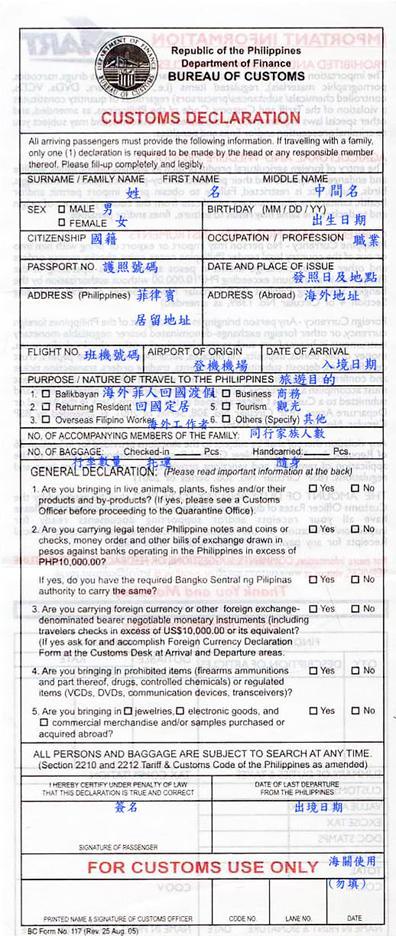 Republic of the Philippines
Department of Finance
BUREAU OF CUSTOMS
CUSTOMS DECLARATION
All arriving passengers must provide the following information. If travelling with a family,
only one (1) declaration is required to be made by the head or any responsible member
thereof. Please fill-up completely and legibly.
SURNAME / FAMILY NAME FIRST NAME MIDDLE NAME
姓 名 中間名
SEX ☐ MALE 男 BIRTHDAY (MM / DD / YY)
☐ FEMALE 女 出生日期
CITIZENSHIP 國籍 OCCUPATION / PROFESSION 職業
PASSPORT NO. 護照號碼 DATE AND PLACE OF ISSUE
發照日及地點
ADDRESS (Philippines) 菲律賓 ADDRESS (Abroad) 海外地址
居留地址
FLIGHT NO. 班機號碼 AIRPORT OF ORIGIN DATE OF ARRIVAL
登機機場 入境日期
PURPOSE / NATURE OF TRAVEL TO THE PHILIPPINES 旅遊目的
1. ☐ Balikbayan 海外菲人回國渡假 4. ☐ Business 商務
2. ☐ Returning Resident 回國定居 5. ☐ Tourism 觀光
3. ☐ Overseas Filipino Worker 海外工作者 6. ☐ Others (Specify) 其他
NO. OF ACCOMPANYING MEMBERS OF THE FAMILY: 同行家族人數
NO. OF BAGGAGE: Checked-in ____ Pcs. Handcarried:____ Pcs.
行李數量 托運 隨身
GENERAL DECLARATION: (Please read important information at the back)
1. Are you bringing in live animals, plants, fishes and/or their ☐ Yes ☐ No
products and by-products? (If yes, please see a Customs
Officer before proceeding to the Quarantine Office).
2. Are you carrying legal tender Philippine notes and coins or ☐ Yes ☐ No
checks, money order and other bills of exchange drawn in
pesos against banks operating in the Philippines in excess of
PHP10,000.00?
If yes, do you have the required Bangko Sentral ng Pilipinas ☐ Yes ☐ No
authority to carry the same?
3. Are you carrying foreign currency or other foreign exchange- ☐ Yes ☐ No
denominated bearer negotiable monetary instruments (including
travelers checks in excess of US$10,000.00 or its equivalent?
(If yes ask for and accomplish Foreign Currency Declaration
Form at the Customs Desk at Arrival and Departure areas.
4. Are you bringing in prohibited items (firearms ammunitions ☐ Yes ☐ No
and part thereof, drugs, controlled chemicals) or regulated
items (VCDs, DVDs, communication devices, transceivers)?
5. Are you bringing in ☐ jewelries, ☐ electronic goods, and ☐ Yes ☐ No
☐ commercial merchandise and/or samples purchased or
acquired abroad?
ALL PERSONS AND BAGGAGE ARE SUBJECT TO SEARCH AT ANY TIME.
(Section 2210 and 2212 Tariff & Customs Code of the Philippines as amended)
I HEREBY CERTIFY UNDER PENALTY OF LAW DATE OF LAST DEPARTURE
THAT THIS DECLARATION IS TRUE AND CORRECT FROM THE PHILIPPINES
簽名 出境日期
SIGNATURE OF PASSENGER
FOR CUSTOMS USE ONLY 海關使用
(勿填)
PRINTED NAME & SIGNATURE OF CUSTOMS OFFICER CODE NO. LANE NO. DATE
BC Form No. 117 (Rev. 25 Aug. 05)